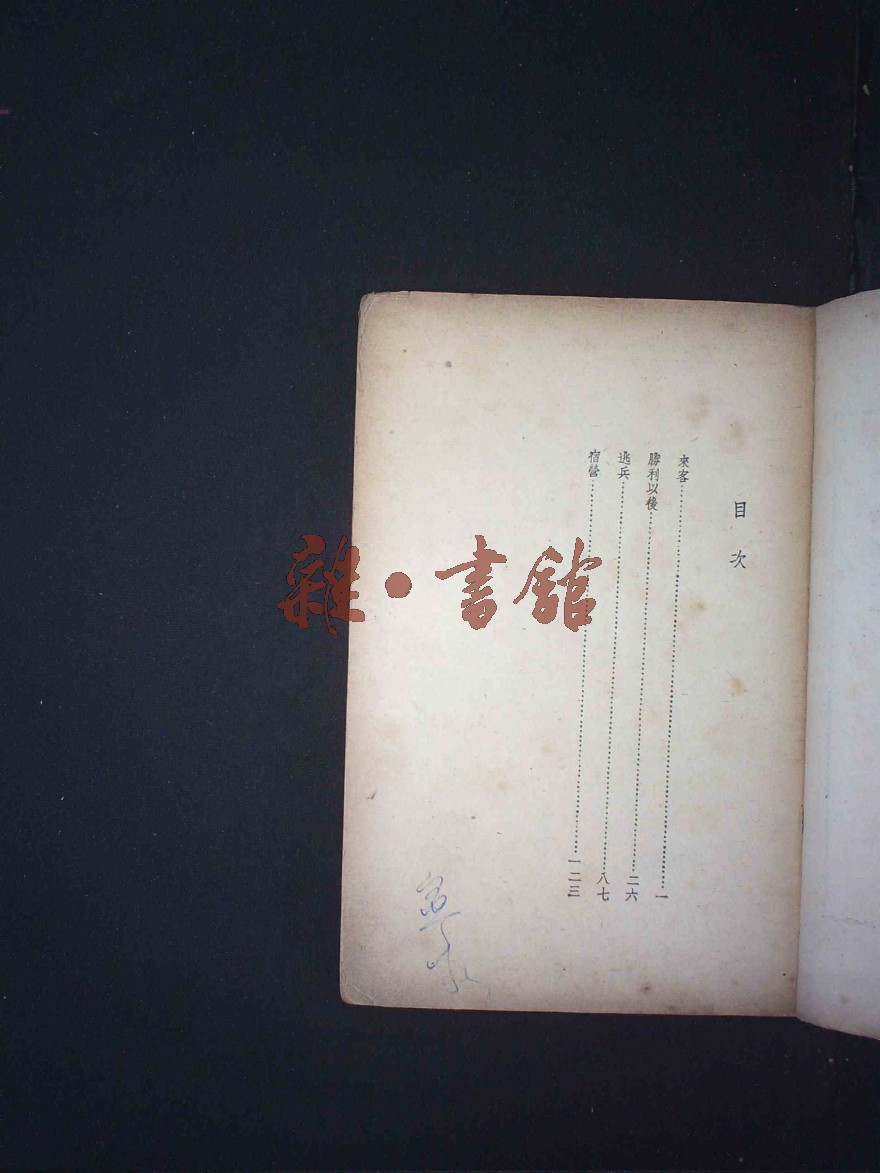 目次
來客…………一
勝利以後…………二六
逃兵…………八七
宿營…………一二三
雜·書館